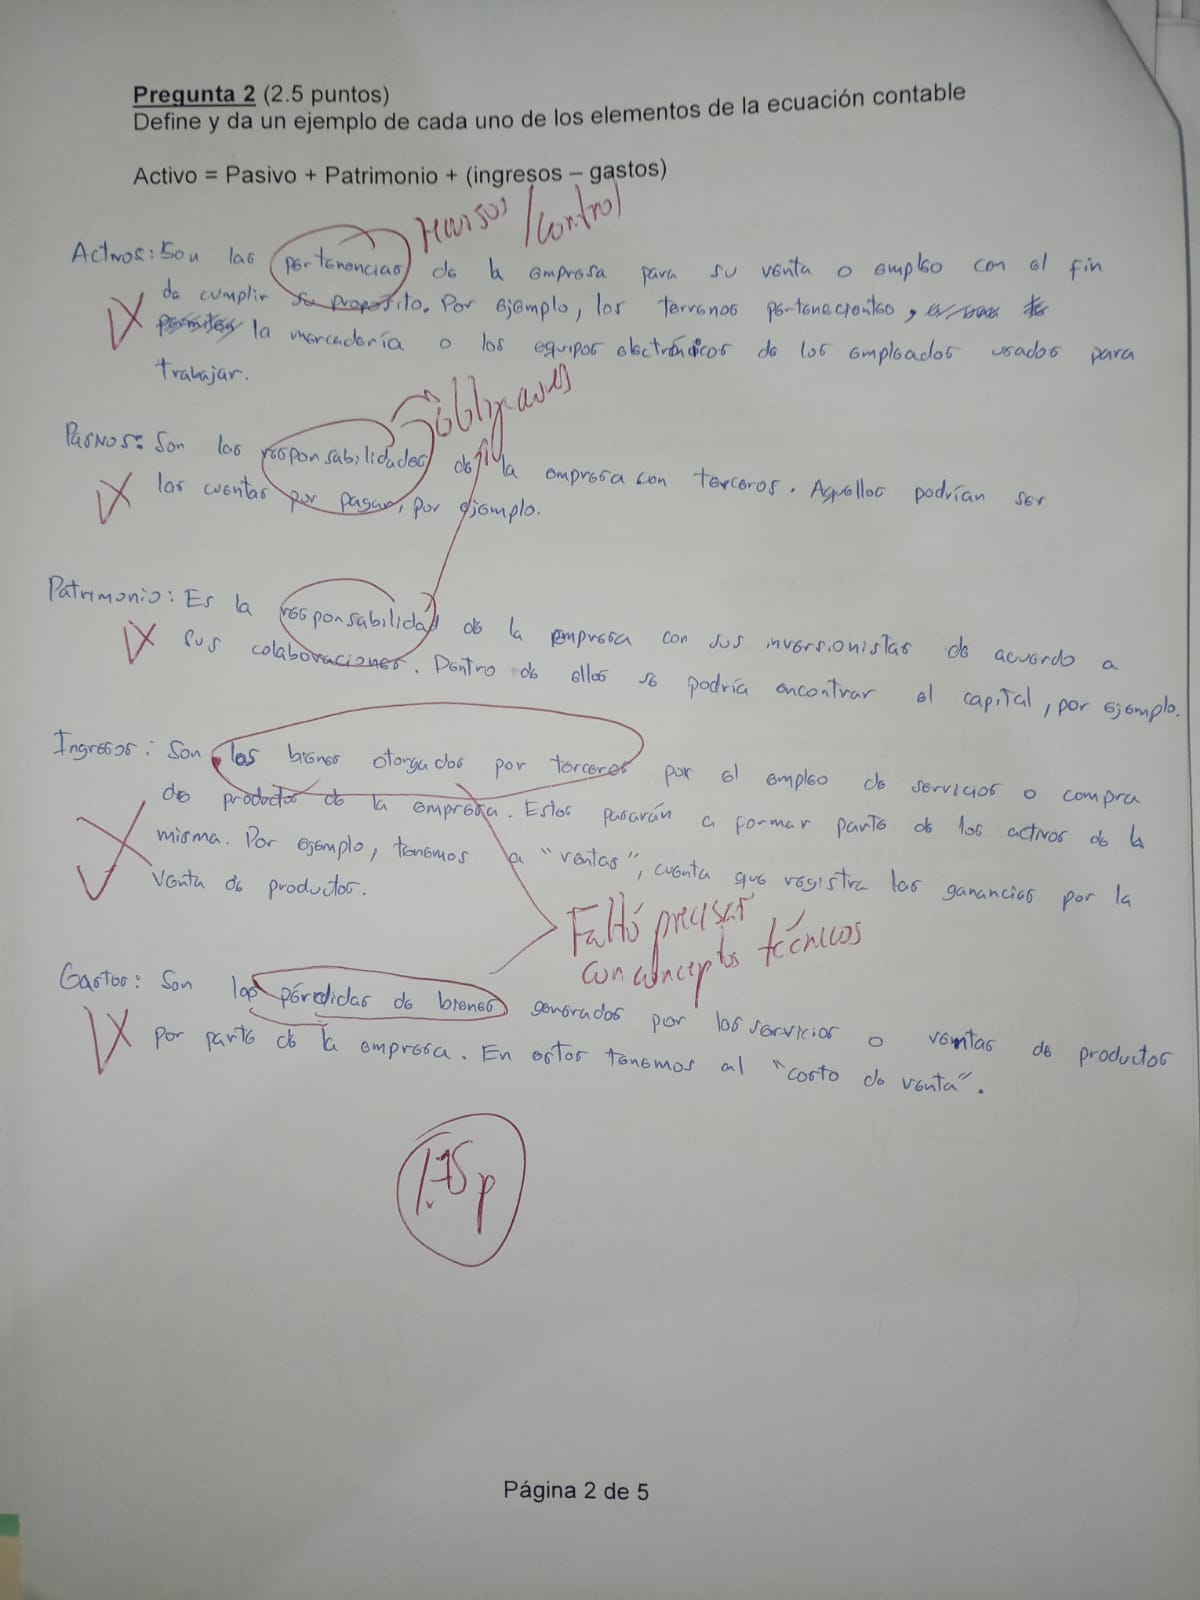 Pregunta 2 (2.5 puntos)
Define y da un ejemplo de cada uno de los elementos de la ecuación contable
Activo = Pasivo + Patrimonio + (ingresos – gastos)
recursos / control
Activos: Son las pertenencias de la empresa para su venta o empleo con el fin
de cumplir su propósito. Por ejemplo, los terrenos pertenecientes,
la mercadería o los equipos electrónicos de los empleados usados para
trabajar.
obligaciones
Pasivos: Son las responsabilidades de la empresa con terceros. Aquellos podrían ser
las cuentas por pagar, por ejemplo.
Patrimonio: Es la responsabilidad de la empresa con sus inversionistas de acuerdo a
sus colaboraciones. Dentro de ellos se podría encontrar el capital, por ejemplo.
Ingresos: Son los bienes otorgados por terceros por el empleo de servicios o compra
de productos de la empresa. Estos pasarán a formar parte de los activos de la
misma. Por ejemplo, tenemos a "ventas", cuenta que registra las ganancias por la
venta de productos.
Faltó precisar
con conceptos técnicos
Gastos: Son las pérdidas de bienes generados por los servicios o ventas de productos
por parte de la empresa. En estos tenemos al "costo de venta".
1.75 p
Página 2 de 5